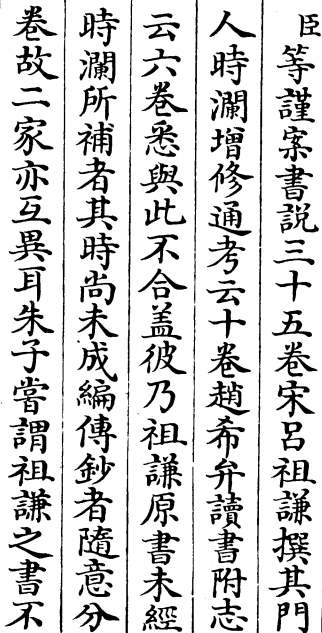 臣等謹案書説三十五卷宋吕祖謙撰其門
人時瀾增修通考云十卷趙希弁讀書附志
云六卷悉與此不合盖彼乃祖謙原書未經
時瀾所補者其時尚未成編傳鈔者隨意分
卷故二家亦互異耳朱子嘗謂祖謙之書不